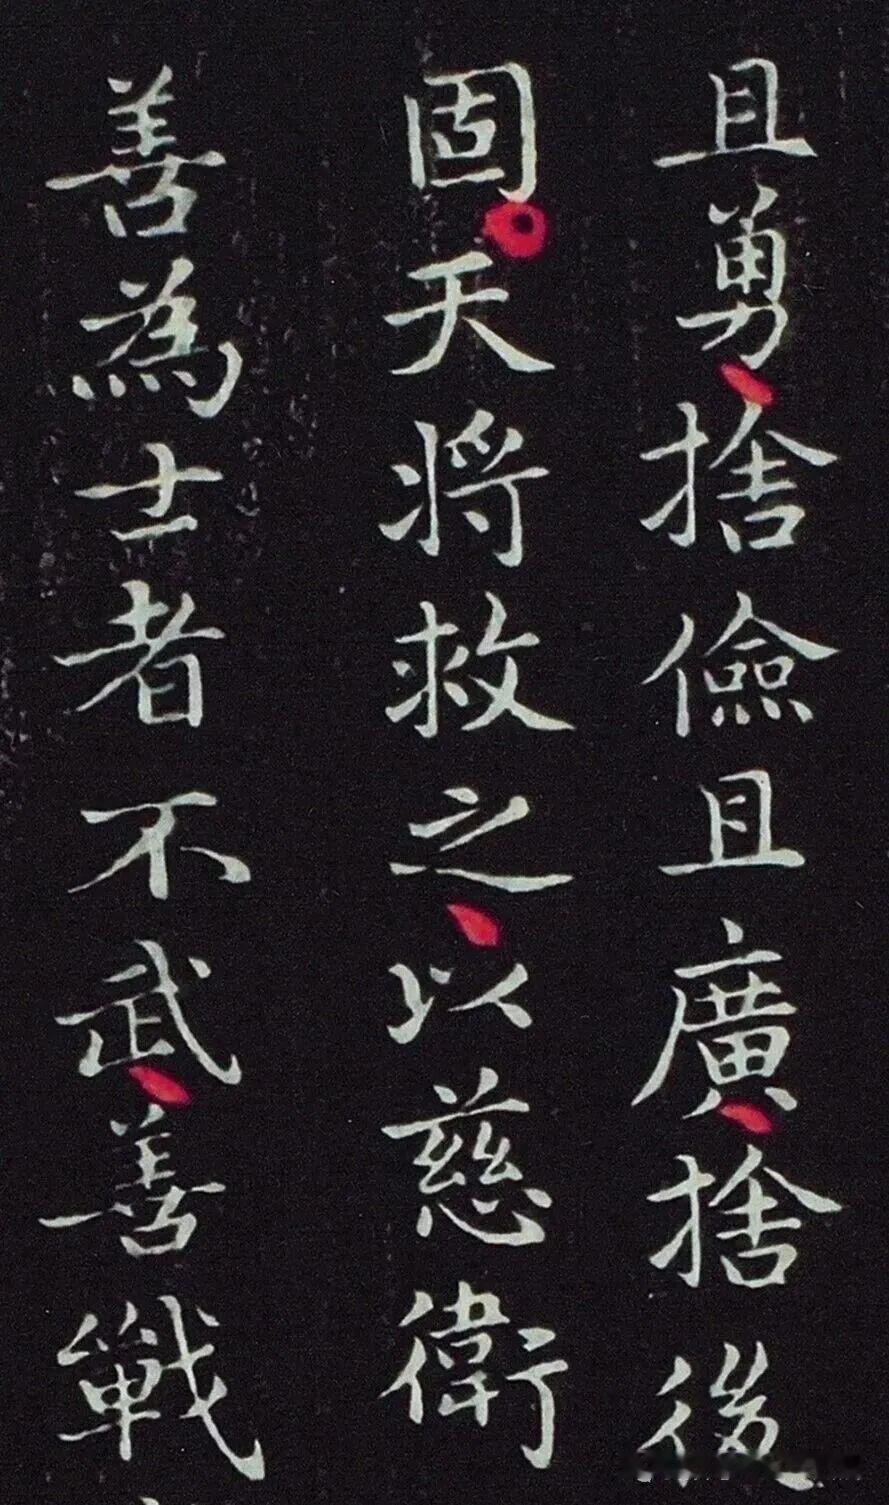 且勇捨儉且廣捨後
固天将救之以慈衛
善為士者不武善戰